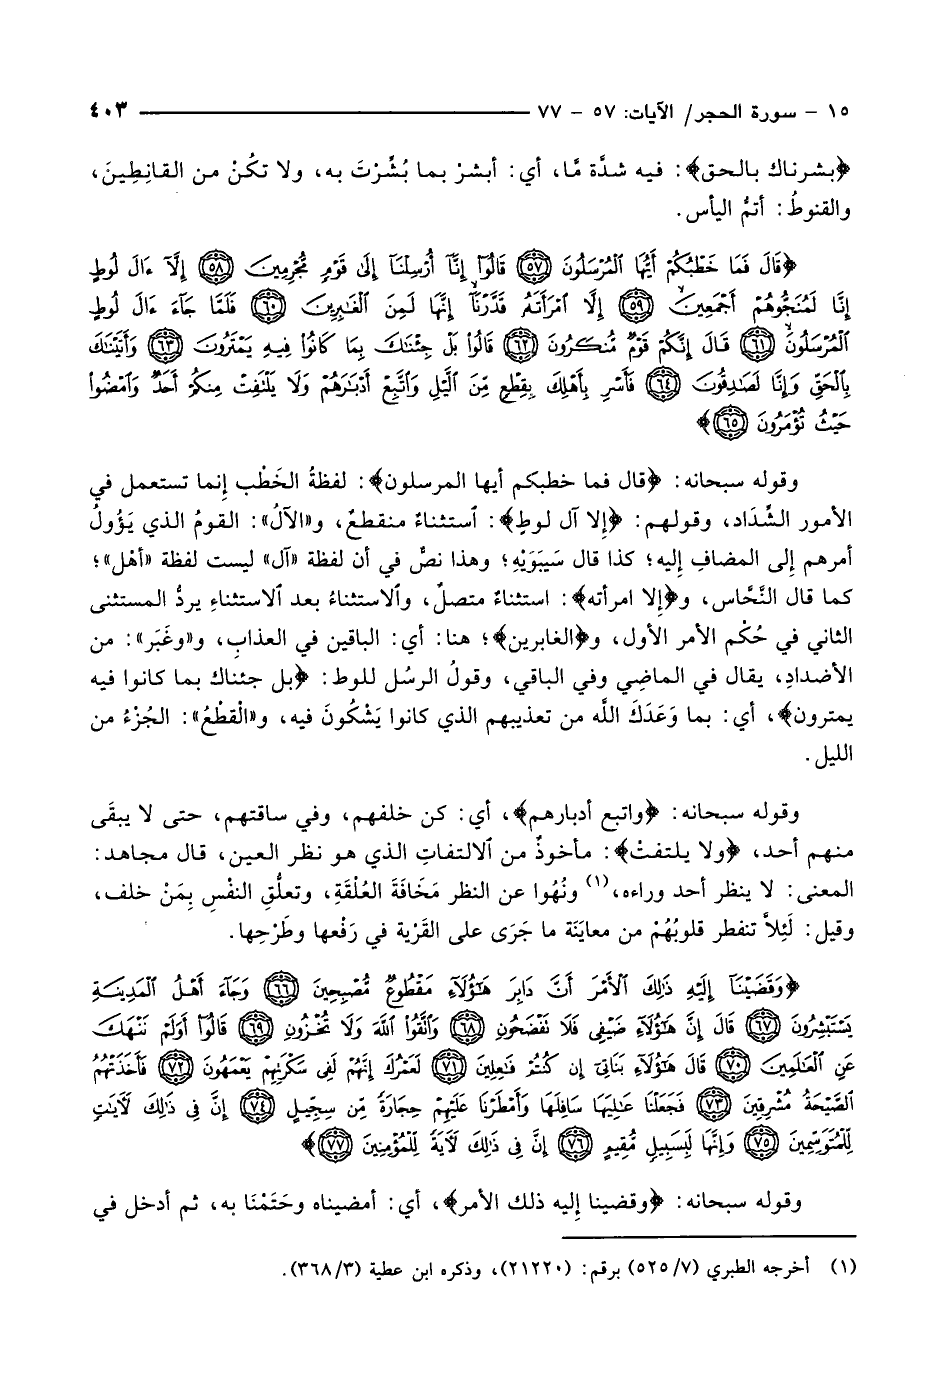 ١٥ - سورة الحجر/ الآيات: ٥٧ - ٧٧ ٤٠٣
﴿بشرناك بالحق﴾: فيه شدَّة مَّا، أي: أبشرْ بما بُشِّرْتَ به، ولا تكُنْ من القانِطِينَ،
والقنوطُ: أتمُّ اليأس.
﴿قَالَ فَمَا خَطْبُكُمْ أَيُّهَا الْمُرْسَلُونَ ﴿٥٧﴾ قَالُوٓا۟ إِنَّآ أُرْسِلْنَآ إِلَىٰ قَوْمٍ مُّجْرِمِينَ ﴿٥٨﴾ إِلَّآ ءَالَ لُوطٍ
إِنَّا لَمُنَجُّوهُمْ أَجْمَعِينَ ﴿٥٩﴾ إِلَّا ٱمْرَأَتَهُۥ قَدَّرْنَآ إِنَّهَا لَمِنَ ٱلْغَٰبِرِينَ ﴿٦٠﴾ فَلَمَّا جَآءَ ءَالَ لُوطٍ
ٱلْمُرْسَلُونَ ﴿٦١﴾ قَالَ إِنَّكُمْ قَوْمٌ مُّنكَرُونَ ﴿٦٢﴾ قَالُوا۟ بَلْ جِئْنَٰكَ بِمَا كَانُوا۟ فِيهِ يَمْتَرُونَ ﴿٦٣﴾ وَأَتَيْنَٰكَ
بِٱلْحَقِّ وَإِنَّا لَصَٰدِقُونَ ﴿٦٤﴾ فَأَسْرِ بِأَهْلِكَ بِقِطْعٍ مِّنَ ٱلَّيْلِ وَٱتَّبِعْ أَدْبَٰرَهُمْ وَلَا يَلْتَفِتْ مِنكُمْ أَحَدٌ وَٱمْضُوا۟
حَيْثُ تُؤْمَرُونَ ﴿٦٥﴾﴾
وقوله سبحانه: ﴿قال فما خطبكم أيها المرسلون﴾: لفظةُ الخَطْب إِنما تستعمل في
الأمور الشِّدَاد، وقولهم: ﴿إِلا آل لوطٍ﴾: ٱستثناءٌ منقطعٌ، و«الآلُ»: القومُ الذي يَؤُولُ
أمرهم إِلى المضافِ إِليه؛ كذا قال سَيبَوَيْهِ؛ وهذا نصٌّ في أن لفظة «آل» ليست لفظة «أهل»؛
كما قال النَّحَّاس، و﴿إِلا امرأته﴾: استثناءٌ متصلٌ، وٱلاستثناءُ بعد ٱلاستثناءِ يردُّ المستثنى
الثاني في حُكْم الأمر الأول، و﴿الغابرين﴾؛ هنا: أي: الباقين في العذابِ، و«وغَبَر»: من
الأضدادِ، يقال في الماضِي وفي الباقي، وقولُ الرسُل للوط: ﴿بل جئناك بما كانوا فيه
يمترون﴾، أي: بما وَعَدَكَ اللَّه من تعذيبهم الذي كانوا يَشْكُونَ فيه، و«الْقطْعُ»: الجُزْءُ من
الليل.
وقوله سبحانه: ﴿واتبع أدبارهم﴾، أي: كن خلفهم، وفي ساقتهم، حتى لا يبقَى
منهم أحد، ﴿ولا يلتفتْ﴾: مأخوذٌ من ٱلالتفاتِ الذي هو نظر العين، قال مجاهد:
المعنى: لا ينظر أحد وراءه،(١) ونُهُوا عن النظر مَخَافَةَ العُلْقَةِ، وتعلُّقِ النفْسِ بِمَنْ خلف،
وقيل: لَئِلاَّ تنفطر قلوبُهُمْ من معاينَة ما جَرَى على القَرْية في رَفْعها وطَرْحِها.
﴿وَقَضَيْنَآ إِلَيْهِ ذَٰلِكَ ٱلْأَمْرَ أَنَّ دَابِرَ هَٰٓؤُلَآءِ مَقْطُوعٌ مُّصْبِحِينَ ﴿٦٦﴾ وَجَآءَ أَهْلُ ٱلْمَدِينَةِ
يَسْتَبْشِرُونَ ﴿٦٧﴾ قَالَ إِنَّ هَٰٓؤُلَآءِ ضَيْفِى فَلَا تَفْضَحُونِ ﴿٦٨﴾ وَٱتَّقُوا۟ ٱللَّهَ وَلَا تُخْزُونِ ﴿٦٩﴾ قَالُوٓا۟ أَوَلَمْ نَنْهَكَ
عَنِ ٱلْعَٰلَمِينَ ﴿٧٠﴾ قَالَ هَٰٓؤُلَآءِ بَنَاتِىٓ إِن كُنتُمْ فَٰعِلِينَ ﴿٧١﴾ لَعَمْرُكَ إِنَّهُمْ لَفِى سَكْرَتِهِمْ يَعْمَهُونَ ﴿٧٢﴾ فَأَخَذَتْهُمُ
ٱلصَّيْحَةُ مُشْرِقِينَ ﴿٧٣﴾ فَجَعَلْنَا عَٰلِيَهَا سَافِلَهَا وَأَمْطَرْنَا عَلَيْهِمْ حِجَارَةً مِّن سِجِّيلٍ ﴿٧٤﴾ إِنَّ فِى ذَٰلِكَ لَءَايَٰتٍ
لِّلْمُتَوَسِّمِينَ ﴿٧٥﴾ وَإِنَّهَا لَبِسَبِيلٍ مُّقِيمٍ ﴿٧٦﴾ إِنَّ فِى ذَٰلِكَ لَءَايَةً لِّلْمُؤْمِنِينَ ﴿٧٧﴾﴾
وقوله سبحانه: ﴿وقضينا إِليه ذلك الأمر﴾، أي: أمضيناه وحَتَمْنَا به، ثم أدخل في
(١) أخرجه الطبري (٧/ ٥٢٥) برقم: (٢١٢٢٠)، وذكره ابن عطية (٣/ ٣٦٨).